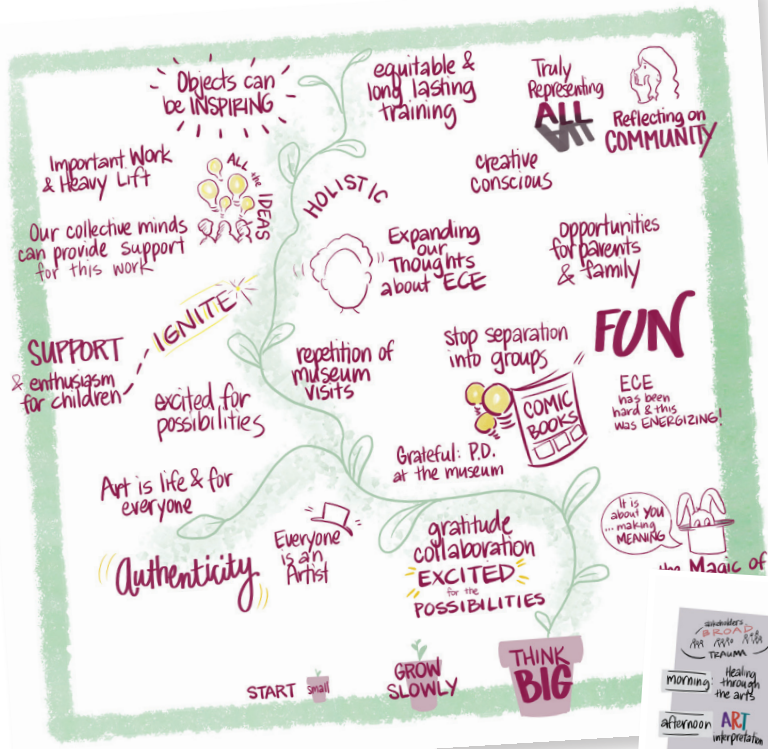 Objects can
be INSPIRING
equitable &
long lasting
training
Truly
Representing
ALL
ALL
Reflecting on
COMMUNITY
Important Work
& Heavy Lift
ALL the IDEAS
HOLISTIC
creative
conscious
Our collective minds
can provide support
for this work
Expanding
our
Thoughts
about ECE
Opportunities
for parents
& family
IGNITE
SUPPORT
& enthusiasm
for children
repetition of
museum
visits
stop separation
into groups
FUN
COMIC
BOOKS
ECE
has been
hard & this
was ENERGIZING!
excited for
possibilities
Grateful: P.D.
at the museum
Art is life & for
everyone
Authenticity
Everyone
is an
Artist
gratitude
collaboration
EXCITED
for the
POSSIBILITIES
It is
about YOU
... making
MEANING
the Magic of
START small
GROW
SLOWLY
THINK
BIG
stakeholders
BROAD
TRAUMA
morning
Healing
through
the arts
afternoon
ART
interpretation